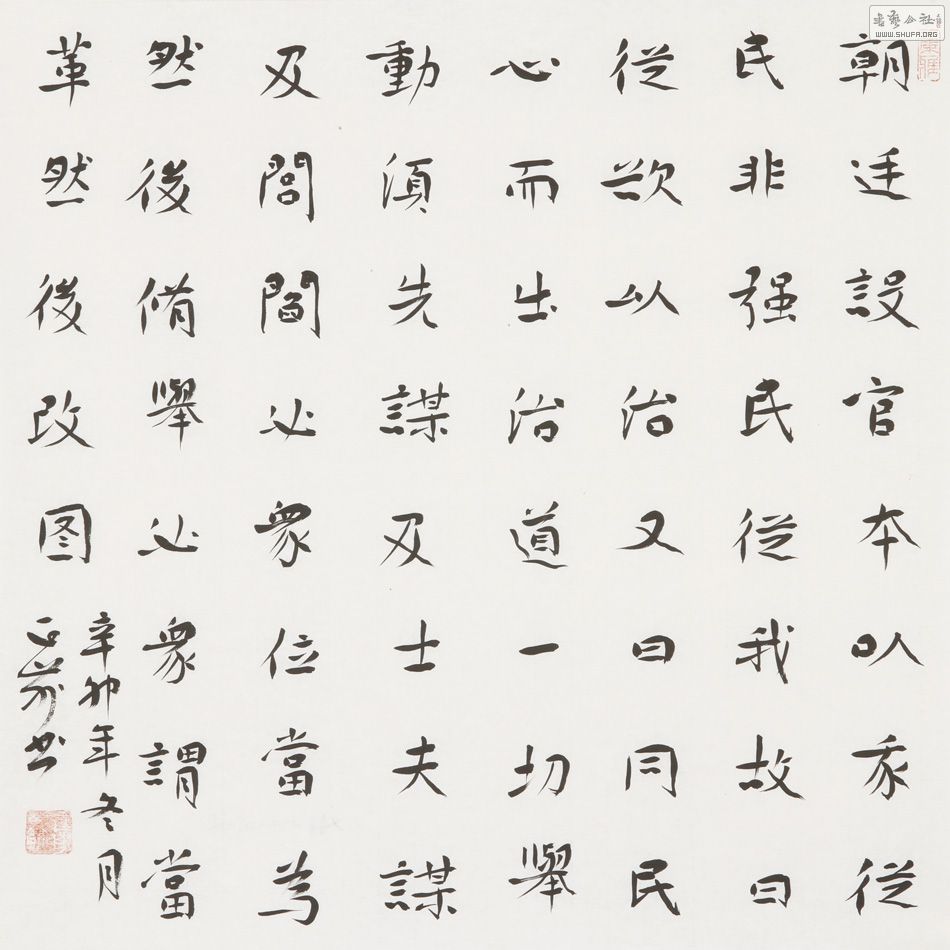 朝廷設官本以承從
民非强民從我故曰
從欲以治又曰同民
心而出治道一切舉
動須先謀及士夫謀
及閭閻必衆位當為
然後脩舉必衆謂當
革然後改图
辛卯年冬月
书
书艺公社
WWW.SHUFA.ORG